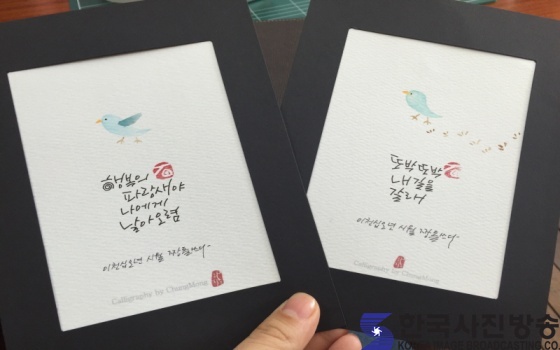 행복의
파랑새야
나에게
날아오렴
이천십오년 시월 자장을쓰다-
Calligraphy by ChangMong
또박또박
내길을
갈래
이천십오년 시월 자장을쓰다-
Calligraphy by ChangMong
한국사진방송
KOREA IMAGE BROADCASTING CO.